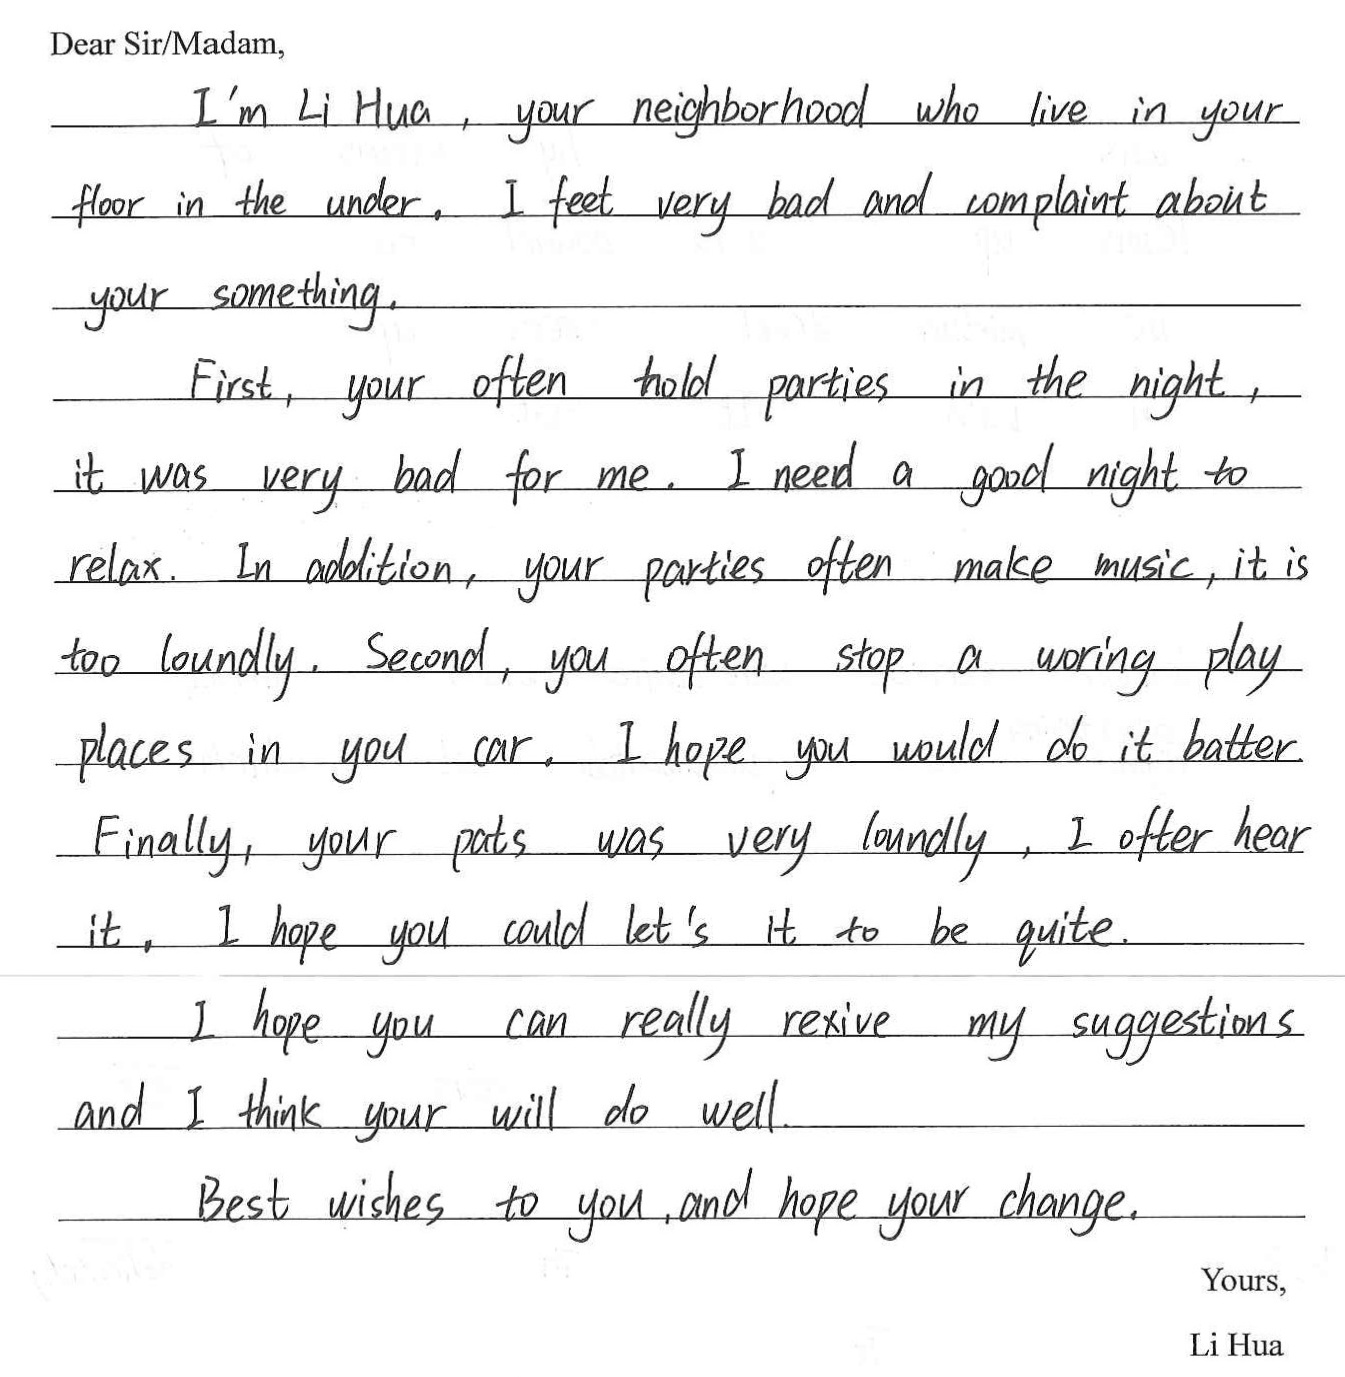 Dear Sir/Madam,
I'm Li Hua, your neighborhood who live in your
floor in the under. I feet very bad and complaint about
your something.
First, your often hold parties in the night,
it was very bad for me. I need a good night to
relax. In addition, your parties often make music, it is
too loundly. Second, you often stop a woring play
places in you car. I hope you would do it batter.
Finally, your pats was very loundly, I ofter hear
it. I hope you could let's it to be quite.
I hope you can really rexive my suggestions
and I think your will do well.
Best wishes to you, and hope your change.
Yours,
Li Hua